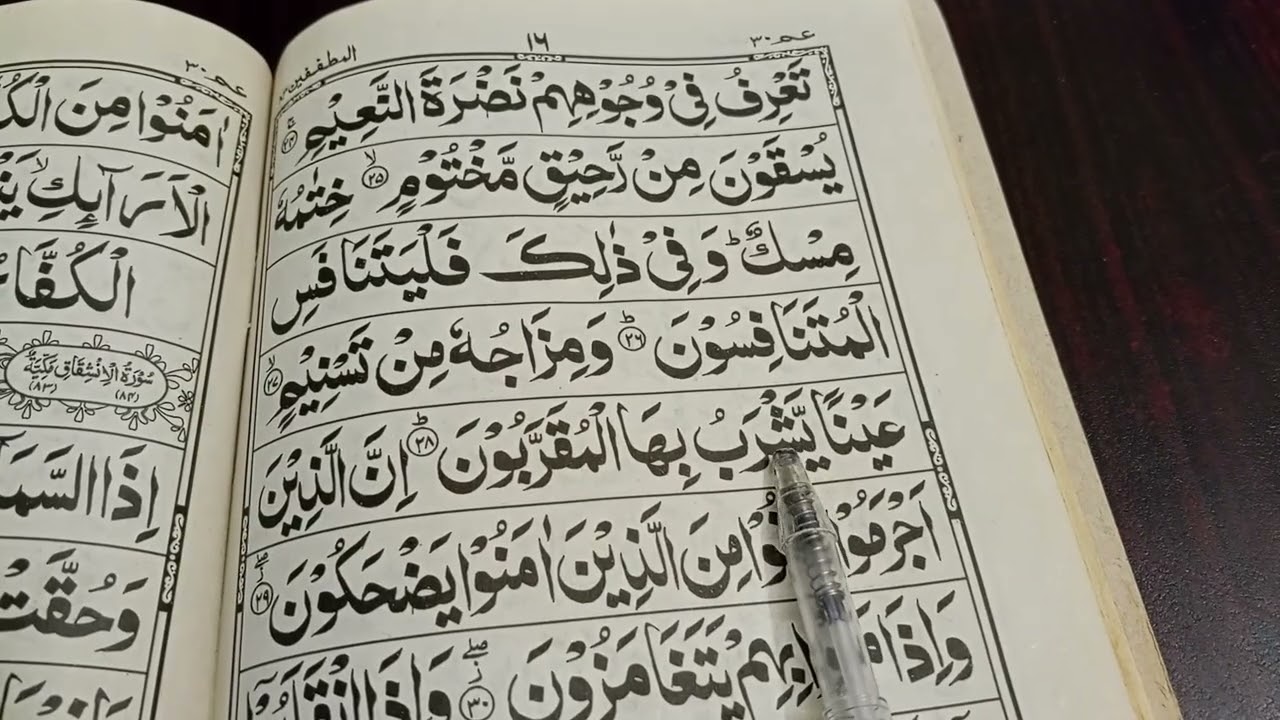 عم ٣٠
١٦
المطففين ٨٣
تَعْرِفُ فِيْ وُجُوْهِهِمْ نَضْرَةَ النَّعِيْمِ ۚ ٢٤
يُسْقَوْنَ مِنْ رَّحِيْقٍ مَّخْتُوْمٍ ۙ ٢٥ خِتٰمُهٗ
مِسْكٌ ؕ وَفِيْ ذٰلِكَ فَلْيَتَنَافَسِ
الْمُتَنَافِسُوْنَ ؕ ٢٦ وَمِزَاجُهٗ مِنْ تَسْنِيْمٍ ۙ ٢٧
عَيْنًا يَّشْرَبُ بِهَا الْمُقَرَّبُوْنَ ؕ ٢٨ اِنَّ الَّذِيْنَ
اَجْرَمُوْا مِنَ الَّذِيْنَ اٰمَنُوْا يَضْحَكُوْنَ ۖ ٢٩
وَاِذَا بِهِمْ يَتَغَامَزُوْنَ ۖ ٣٠ وَاِذَا انْقَلَبُوْۤا
عم ٣٠
اٰمَنُوْا مِنَ
الْاَرَآئِكِ ۙ
الْكُفَّا
سُوْرَةُ الْاِنْشِقَاقِ مَكِّيَّةٌ
(٨٤) (٨٣)
اِذَا السَّمَا
وَحُقَّتْ